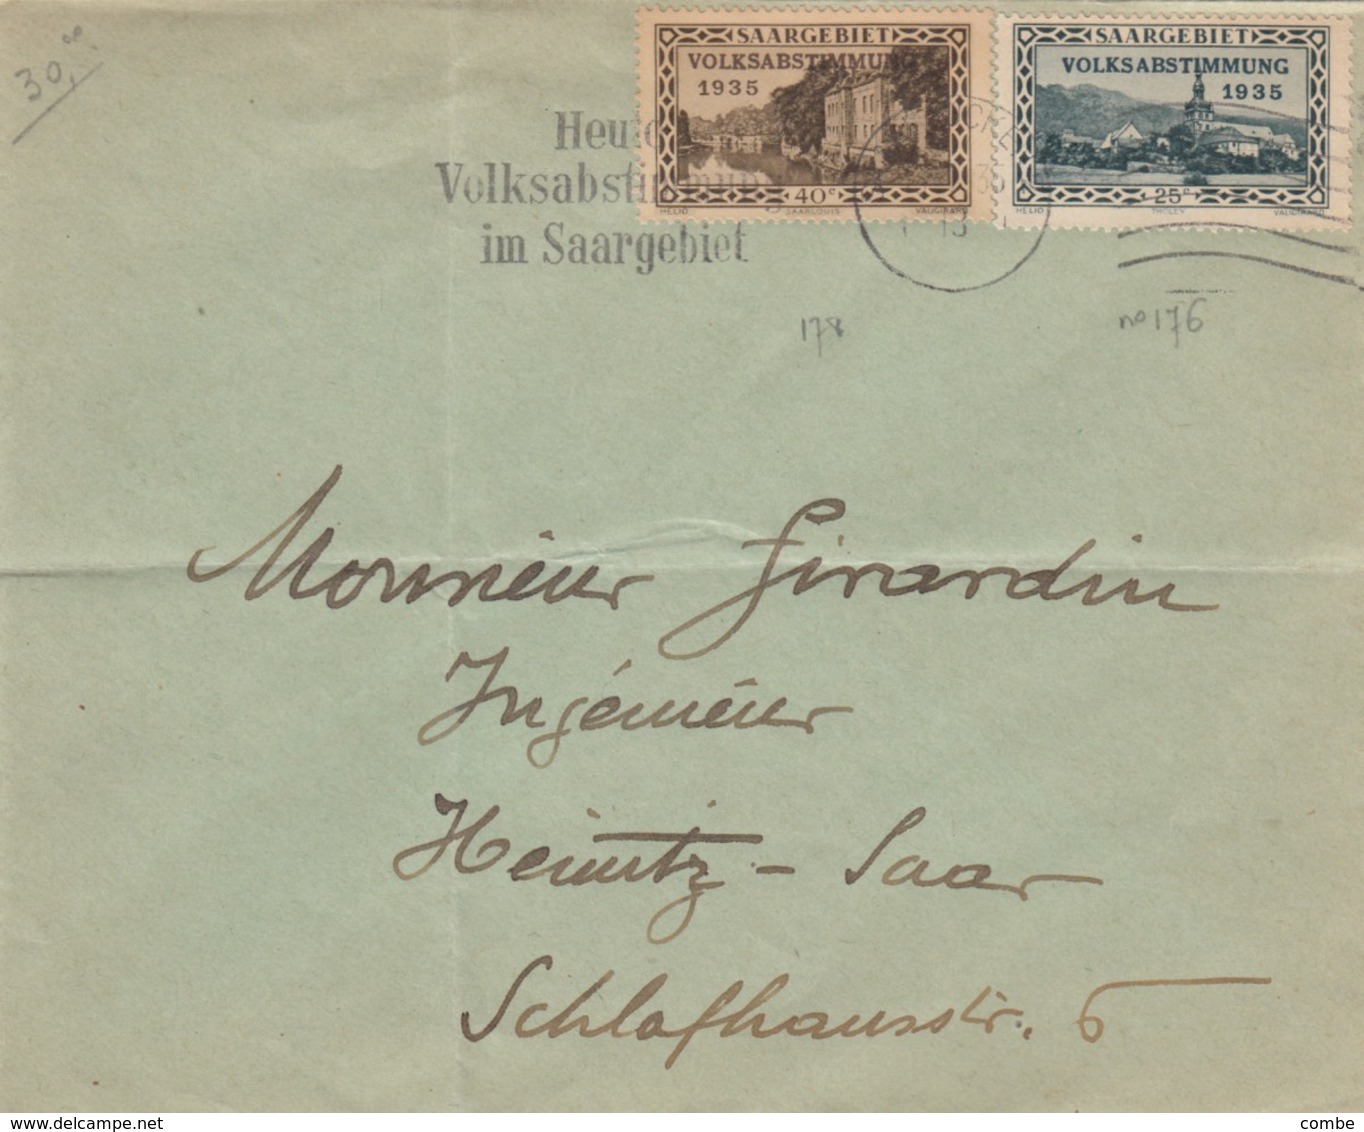 30,-
SAARGEBIET
VOLKSABSTIMMUNG
1935
40c
HELIO SAARLOUIS VAUGIRARD
SAARGEBIET
VOLKSABSTIMMUNG
1935
25c
HELIO THOLEY VAUGIRARD
Heute
Volksabstimmung
im Saargebiet
178
no 176
Monsieur Girardin
Ingénieur
Heinitz - Saar
Schlafhausstr. 6
www.delcampe.net
combe